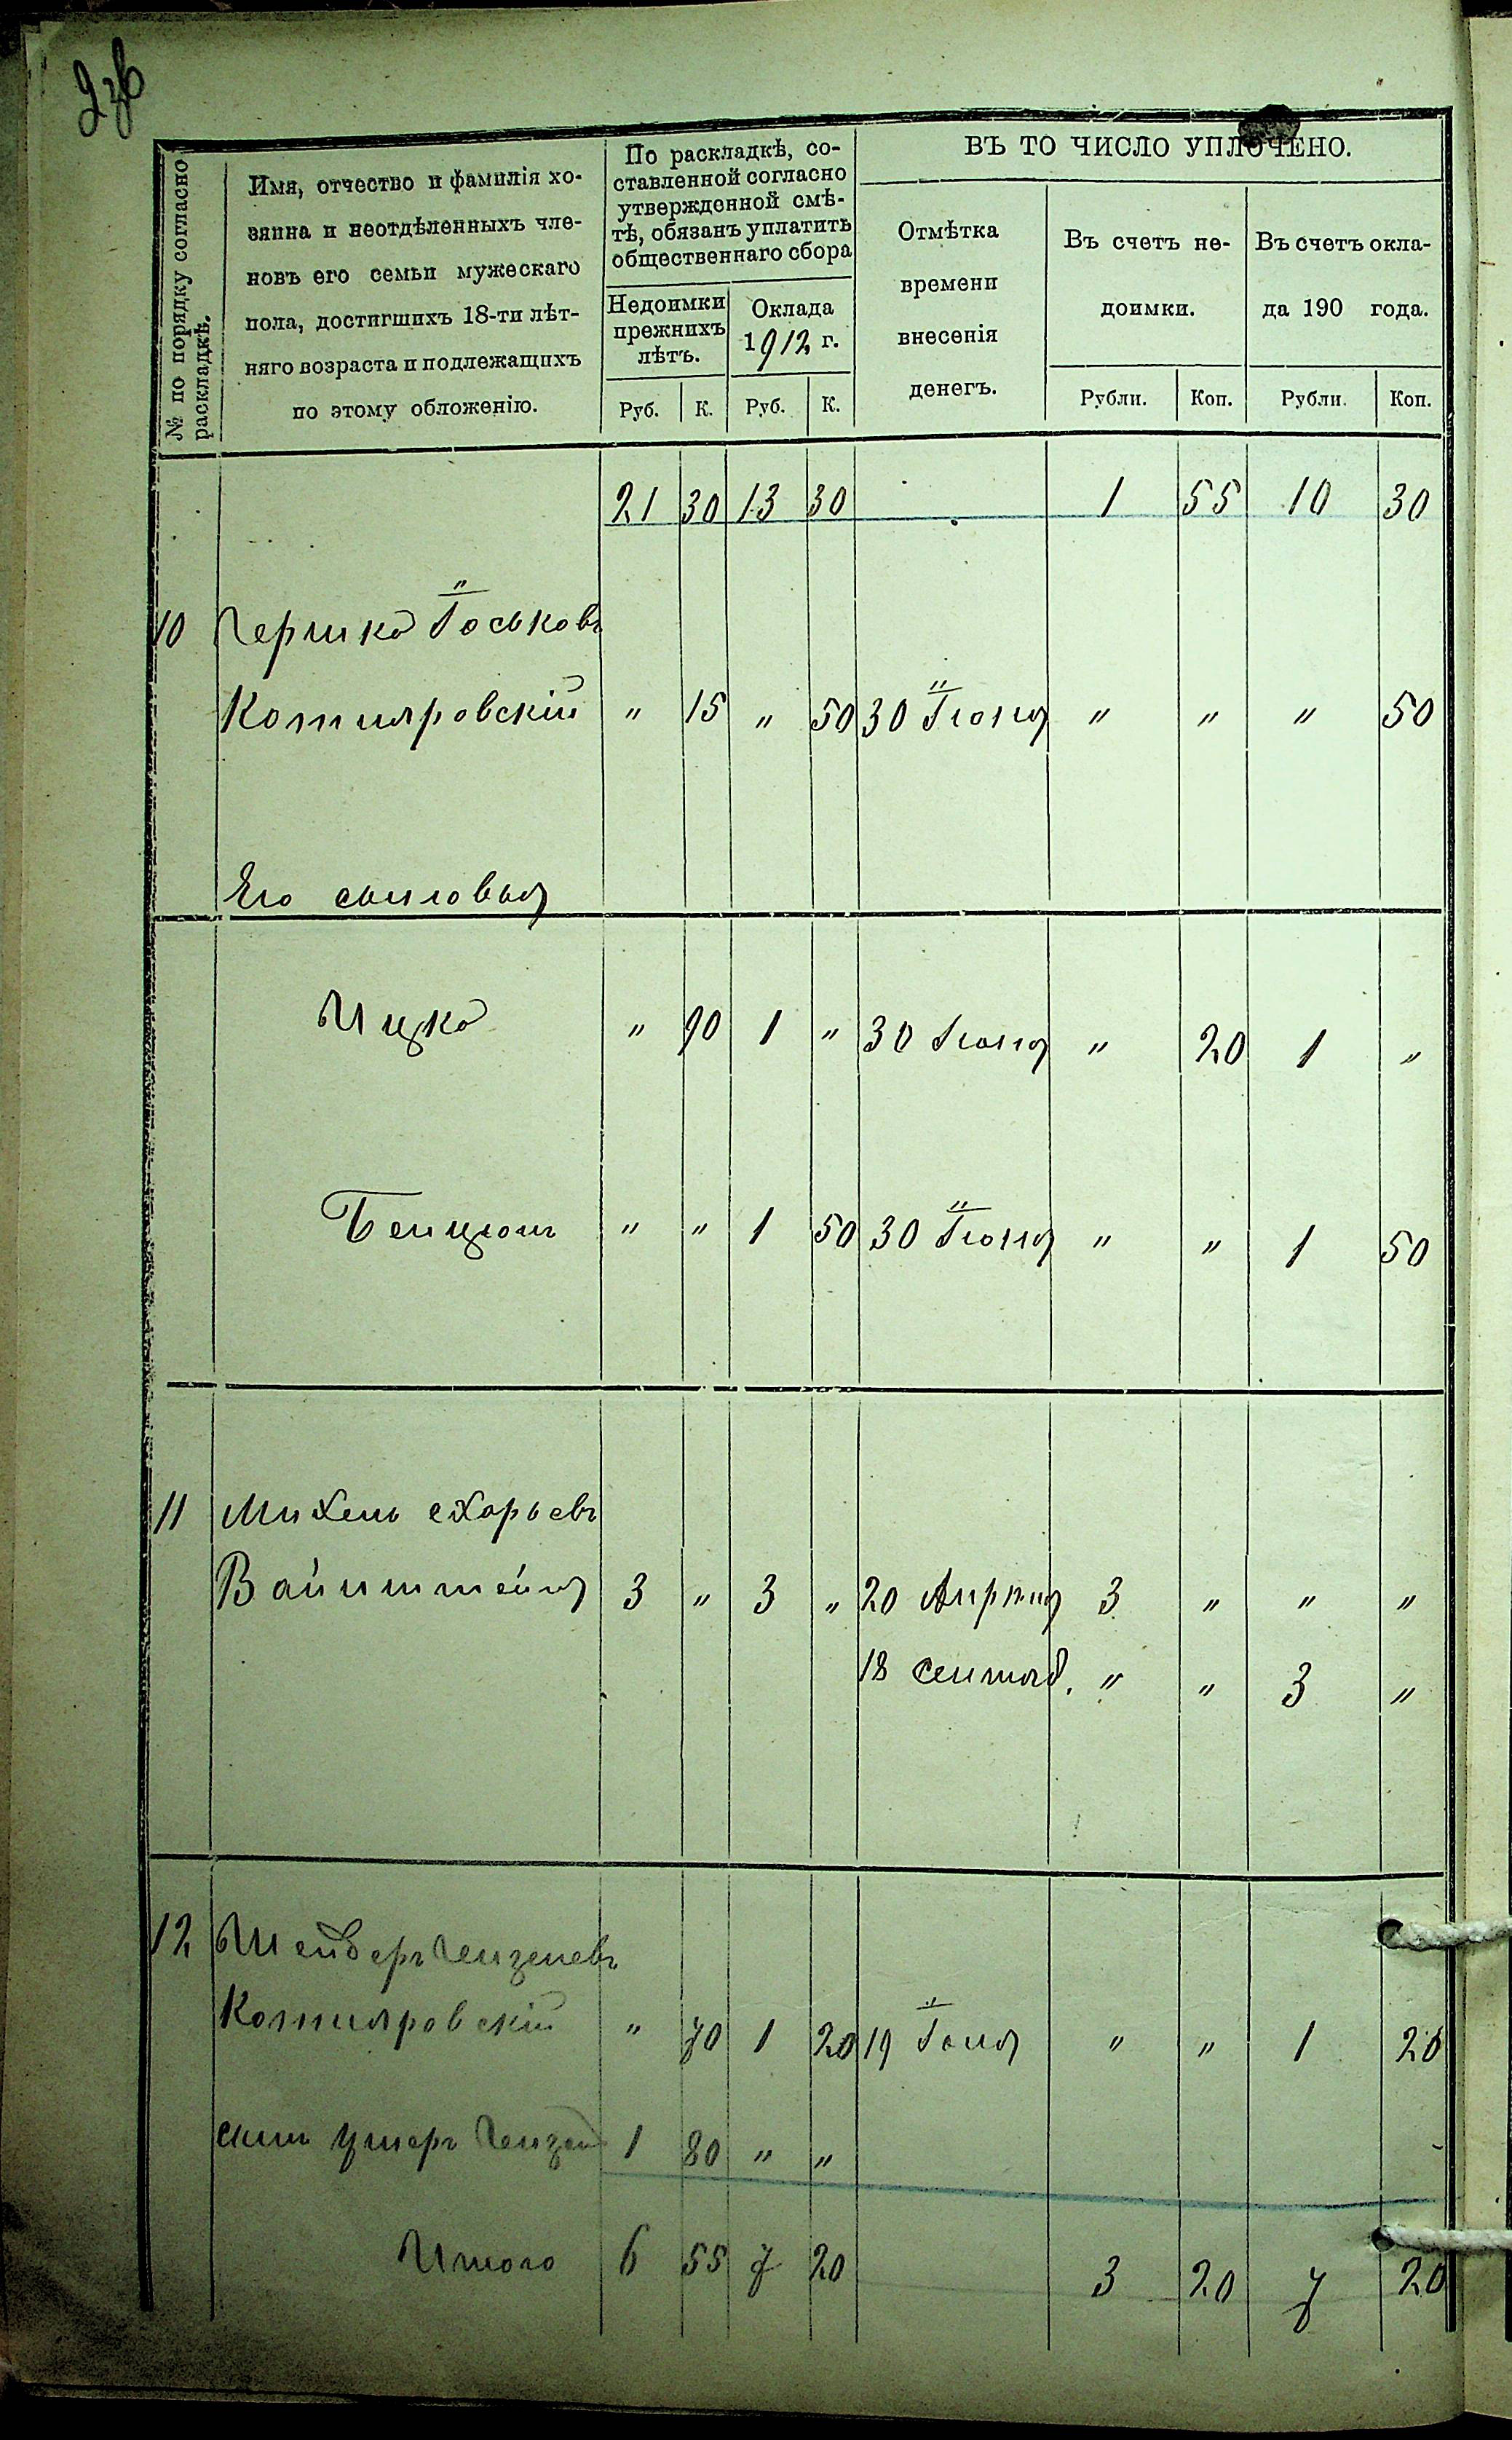 № по порядку согласно раскладкѣ.
Имя, отчество и фамилія хо-
зяина и неотдѣленныхъ чле-
новъ его семьи мужескаго
пола, достигшихъ 18-ти лѣт-
няго возраста и подлежащихъ
по этому обложенію.
По раскладкѣ, со-
ставленной согласно
утвержденной смѣ-
тѣ, обязанъ уплатить
общественнаго сбора
Недоимки
прежнихъ
лѣтъ.
Оклада
1912 г.
Руб. К. Руб. К.
ВЪ ТО ЧИСЛО УПЛОЧЕНО.
Отмѣтка
времени
внесенія
денегъ.
Въ счетъ не-
доимки.
Въ счетъ окла-
да 190 года.
Рубли. Коп. Рубли. Коп.
21 30 13 30 1 55 10 30
10 Гершко Іоськовъ
Котляровскій " 15 " 50 30 Іюня " " " 50
Его сыновья
Ицко " 90 1 " 30 Іюня " 20 1 "
Бенціонъ " " 1 50 30 Іюня " " 1 50
11 Михель
Вайнштейнъ 3 " 3 " 20 Апрѣля 3 " " "
18 Сентяб. " " 3 "
12
Котляровскій " 70 1 20 19 " " 1 20
сынъ 1 80 " "
Итого 6 55 7 20 3 20 7 20